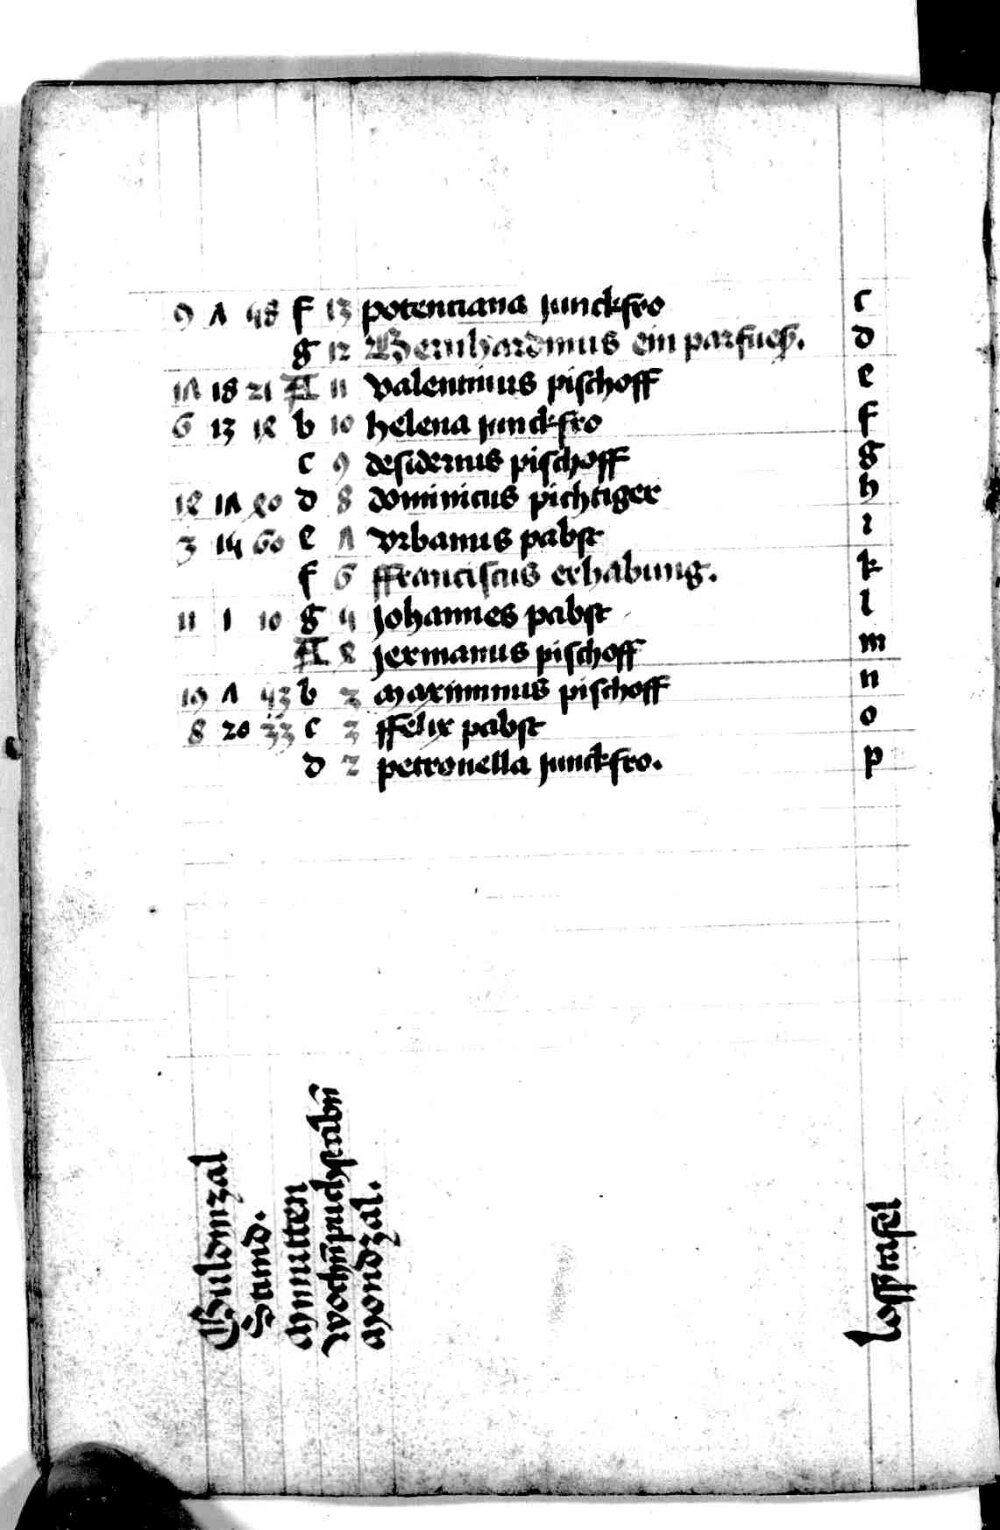 9 7 48 f 13 potenciana junckfro c
g 12 Bernhardinus ein parfueß. d
17 18 21 A 11 valentinus pischoff e
6 13 12 b 10 helena junckfro f
c 9 desiderius pischoff g
12 17 20 d 8 dominicus pichtiger h
3 14 60 e 7 vrbanus pabst i
f 6 ffranciscus erhabung. k
11 1 10 g 4 johannes pabst l
A 8 jermanus pischoff m
19 7 43 b 3 maximinus pischoff n
8 20 33 c 3 ffelix pabst o
d 2 petronella junckfro. p
Guldinzal
Stund.
Mynutten
Wochnpuchstabn
Mondzal.
losstafel